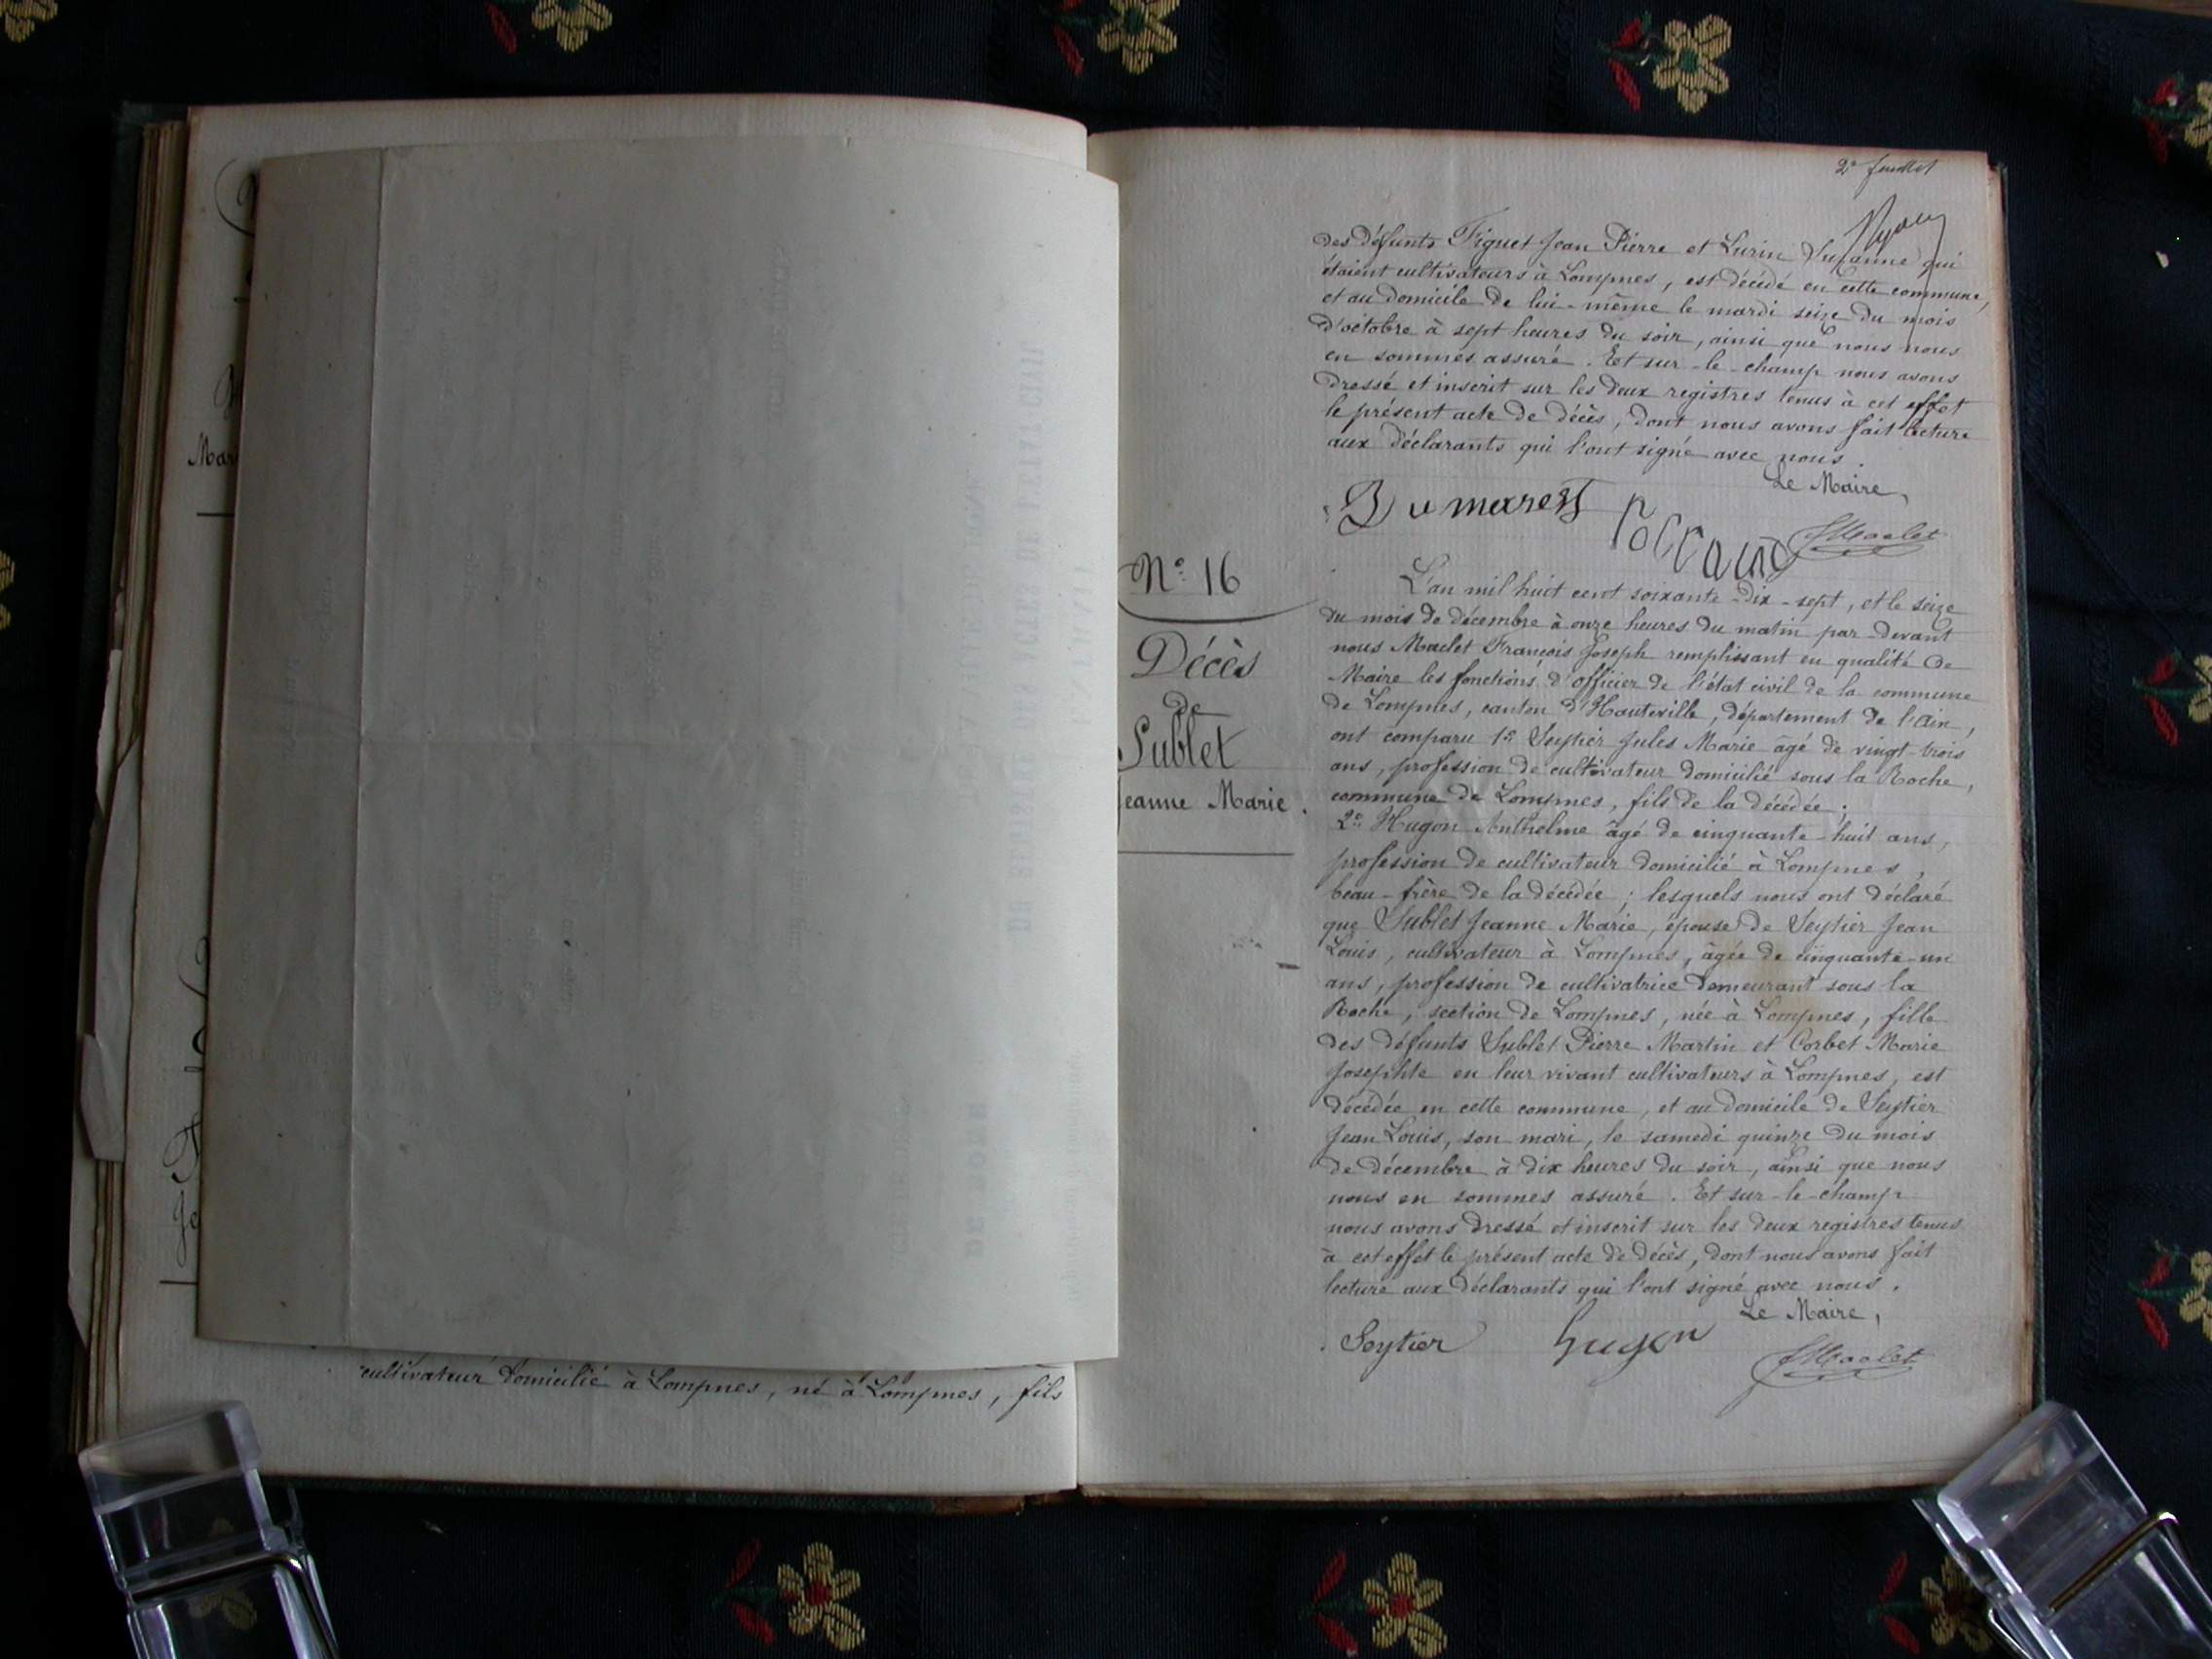 cultivateur domicilié à Lompnes, né à Lompnes, fils
2e feuillet
des défunts Figuet Jean Pierre et Lurin Suzanne qui
étaient cultivateurs à Lompnes, est décédé en cette commune,
et au domicile de lui-même le mardi seize du mois
d'octobre à sept heures du soir, ainsi que nous nous
en sommes assuré. Et sur-le-champ nous avons
dressé et inscrit sur les deux registres tenus à cet effet
le présent acte de décès, dont nous avons fait lecture
aux déclarants qui l'ont signé avec nous.
Le Maire,
Dumarest
FMaclet
N° 16
Décès
de
Sublet
Jeanne Marie.
L'an mil huit cent soixante-dix-sept, et le seize
du mois de décembre à onze heures du matin par-devant
nous Maclet François Joseph remplissant en qualité de
Maire les fonctions d'officier de l'état civil de la commune
de Lompnes, canton d'Hauteville, département de l'Ain,
ont comparu 1° Seytier Jules Marie âgé de vingt-trois
ans, profession de cultivateur domicilié sous la Roche,
commune de Lompnes, fils de la décédée;
2° Hugon Anthelme âgé de cinquante-huit ans,
profession de cultivateur domicilié à Lompnes,
beau-frère de la décédée; lesquels nous ont déclaré
que Sublet Jeanne Marie, épouse de Seytier Jean
Louis, cultivateur à Lompnes, âgée de cinquante-un
ans, profession de cultivatrice demeurant sous la
Roche, section de Lompnes, née à Lompnes, fille
des défunts Sublet Pierre Martin et Corbet Marie
Josephte en leur vivant cultivateurs à Lompnes, est
décédée en cette commune, et au domicile de Seytier
Jean Louis, son mari, le samedi quinze du mois
de décembre à dix heures du soir, ainsi que nous
nous en sommes assuré. Et sur-le-champ
nous avons dressé et inscrit sur les deux registres tenus
à cet effet le présent acte de décès, dont nous avons fait
lecture aux déclarants qui l'ont signé avec nous.
Le Maire,
Seytier
hugon
FMaclet